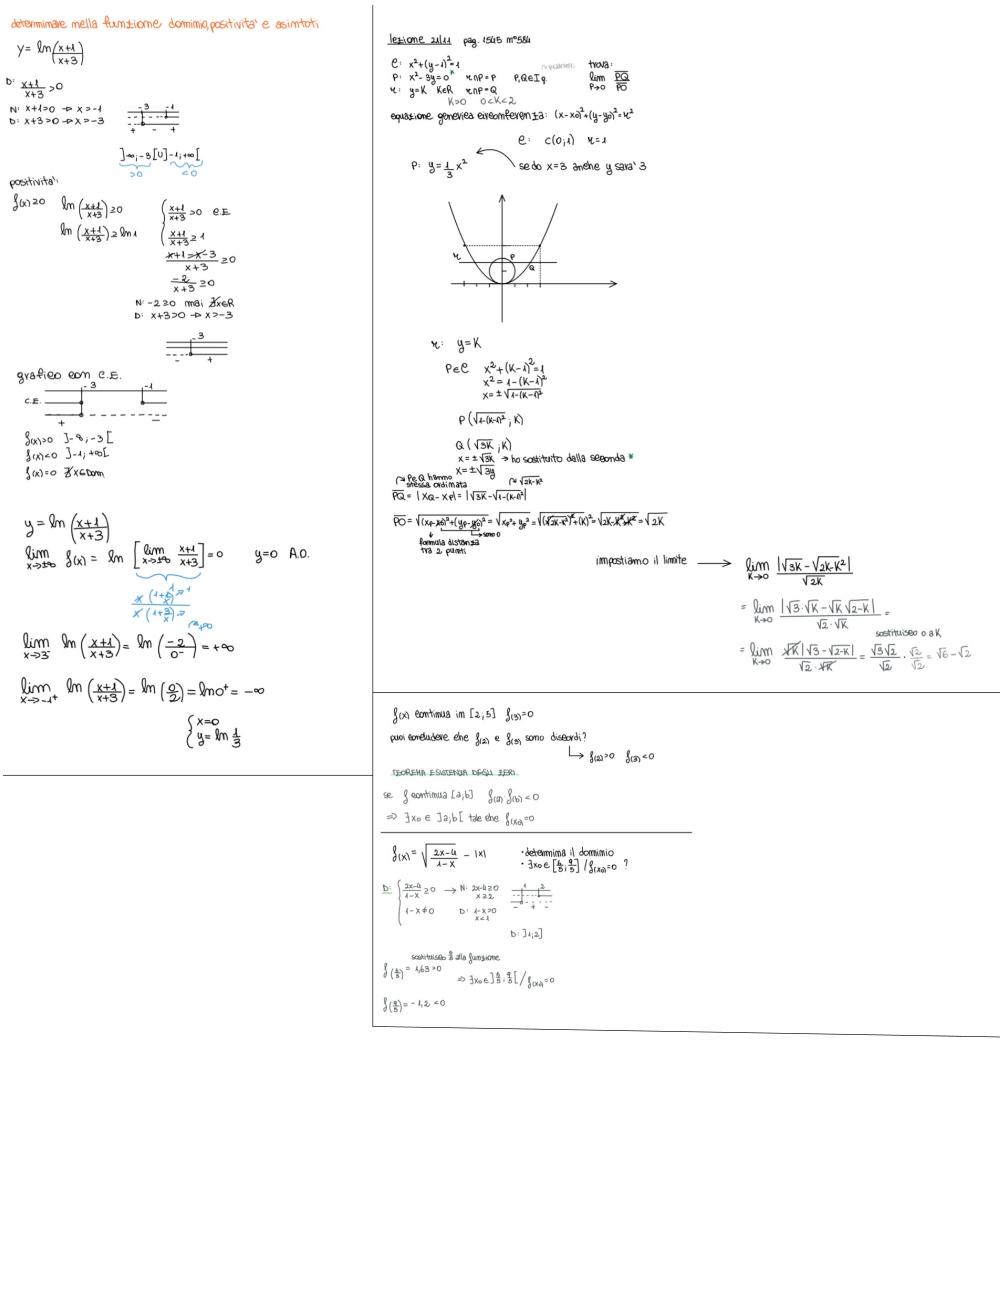 determinare nella funzione: dominio, positivita' e asintoti
y = ln(x+1/x+3)
D: x+1/x+3 >0
N: x+1>0 → x>-1
D: x+3>0 → x>-3
-3 -1
+ - +
]-∞;-3[U]-1;+∞[
>0 <0
positivita':
f(x)≥0 ln(x+1/x+3)≥0 { x+1/x+3 >0 C.E
ln(x+1/x+3)≥ln1 x+1/x+3 ≥1
x+1-x-3/x+3 ≥0
-2/x+3 ≥0
N: -2≥0 mai ∄x∈R
D: x+3>0 → x>-3
-3
- +
grafico con C.E.
-3 -1
C.E.
+ -
f(x)>0 ]-∞;-3[
f(x)<0 ]-1;+∞[
f(x)=0 ∄x∈Dom
y = ln(x+1/x+3)
lim x→±∞ f(x) = ln [lim x→±∞ x+1/x+3] = 0 y=0 A.O.
x(1+1/x)→1
x(1+3/x)→
lim x→-3⁻ ln(x+1/x+3) = ln(-2/0⁻) = +∞
lim x→-1⁺ ln(x+1/x+3) = ln(0/2) = ln0⁺ = -∞
{ x=0
y= ln 1/3
lezione 21/11 pag. 1545 n°584
C: x²+(y-1)²=1 trova:
P: x²-3y=0* r∩P=P P,Q∈I q. lim P→0 PQ/PO
r: y=K K∈R r∩P=Q
K>0 0<K<2
equazione generica circonferenza: (x-x0)²+(y-y0)²=r²
C: C(0;1) r=1
P: y=1/3 x² se do x=3 anche y sara' 3
r P Q
r: y=K
P∈C x²+(K-1)²=1
x²=1-(K-1)²
x=±√1-(K-1)²
P(√1-(K-1)²;K)
Q(√3K;K)
x=±√3K → ho sostituito dalla seconda *
x=±√3y
P e Q hanno stessa ordinata √2K-K²
PQ = |xQ-xP| = |√3K-√1-(K-1)²|
PO = √(xP-x0)²+(yP-y0)² = √xP²+yP² = √(√2K-K²)²+(K)² = √2K-K²+K² = √2K
sono 0
formula distanza
tra 2 punti
impostiamo il limite → lim K→0 |√3K-√2K-K²|/√2K
= lim K→0 |√3·√K-√K√2-K|/√2·√K =
sostituisco 0 a K
= lim K→0 √K|√3-√2-K|/√2·√K = √3√2/√2 · √2/√2 = √6-√2
f(x) continua in [2;5] f(3)=0
puoi concludere che f(2) e f(5) sono discordi?
f(2)>0 f(5)<0
TEOREMA ESISTENZA DEGLI ZERI
se f continua [a;b] f(a)·f(b)<0
⇒ ∃x0∈]a;b[ tale che f(x0)=0
f(x)=√2x-4/1-x - |x| · determina il dominio
· ∃x0∈[6/5;9/5]/f(x0)=0 ?
D: { 2x-4/1-x ≥0 → N: 2x-4≥0 1 2
x≥2
1-x≠0 D: 1-x>0 - + -
x<1
D: ]1;2]
sostituisco 6/5 alla funzione
f(6/5)= 1,63>0 ⇒ ∃x0∈]6/5;9/5[/f(x0)=0
f(9/5)= -1,2 <0